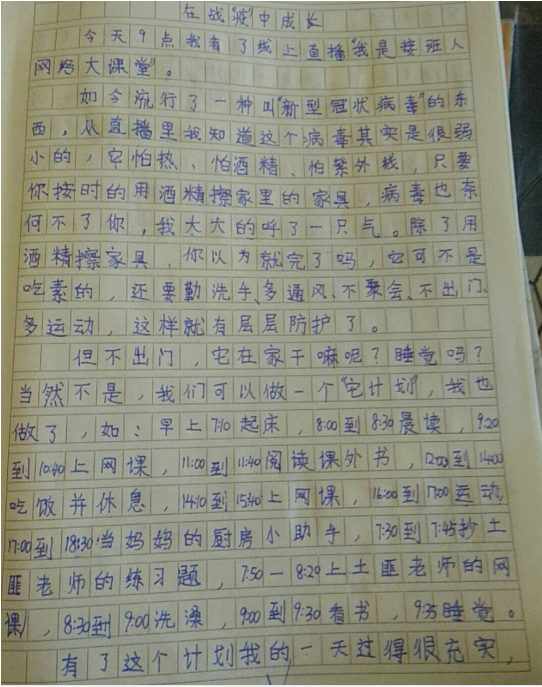 在战"疫"中成长
今天9点我看了线上直播"我是接班人
网络大课堂"。
如今流行了一种叫"新型冠状病毒"的东
西，从直播里我知道这个病毒其实是很弱
小的，它怕热、怕酒精、怕紫外线，只要
你按时的用酒精擦家里的家具，病毒也奈
何不了你，我大大的呼了一只气。除了用
酒精擦家具，你以为就完了吗，它可不是
吃素的，还要勤洗手、多通风、不聚会、不出门、
多运动，这样就有层层防护了。
但不出门，宅在家干嘛呢？睡觉吗？
当然不是，我们可以做一个"宅计划"，我也
做了，如：早上7:10起床，8:00到8:30晨读，9:20
到10:40上网课，11:00到11:40阅读课外书，12:00到14:00
吃饭并休息，14:10到15:40上网课，16:00到17:00运动，
17:00到18:30当妈妈的厨房小助手，7:30到7:45抄土
匪老师的练习题，7:50—8:20上土匪老师的网
课，8:30到9:00洗澡，9:00到9:30看书，9:35睡觉。
有了这个计划我的一天过得很充实，